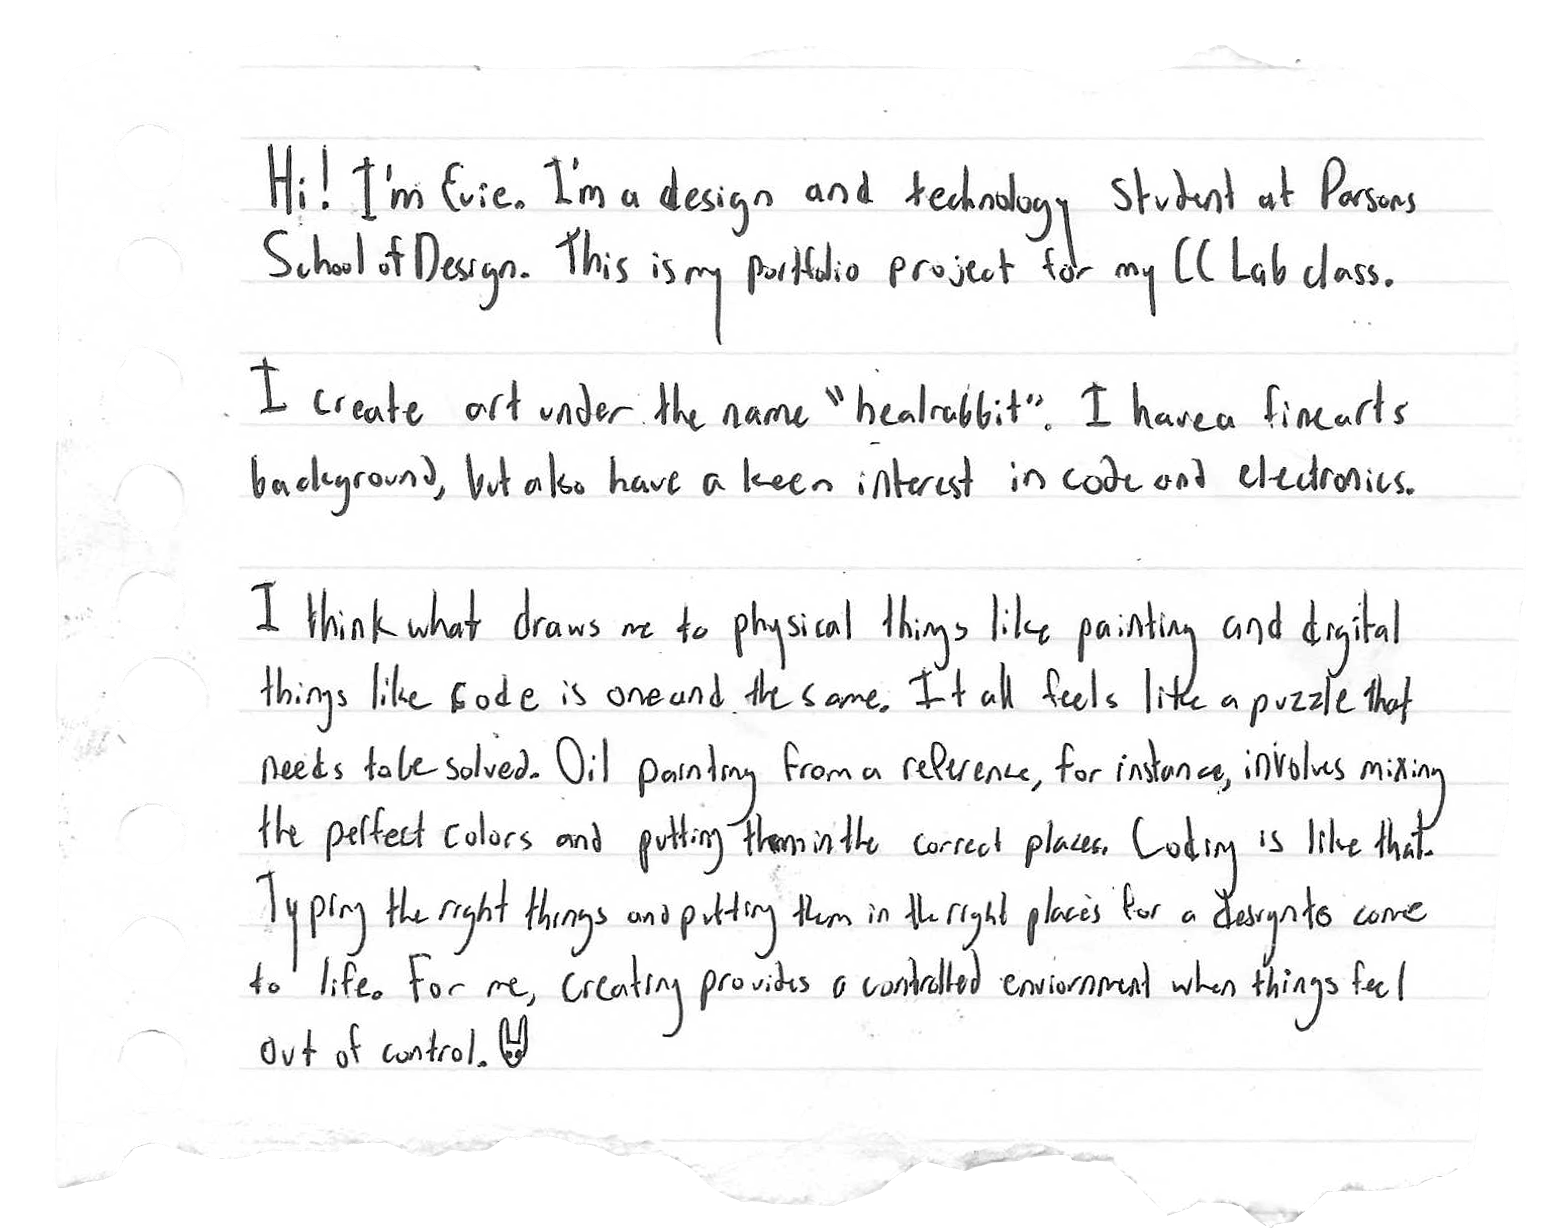 Hi! I'm Evie. I'm a design and technology student at Parsons
School of Design. This is my portfolio project for my CC Lab class.
I create art under the name "healrabbit". I have a fine arts
background, but also have a keen interest in code and electronics.
I think what draws me to physical things like painting and digital
things like code is one and the same. It all feels like a puzzle that
needs to be solved. Oil painting from a reference, for instance, involves mixing
the perfect colors and putting them in the correct places. Coding is like that.
Typing the right things and putting them in the right places for a design to come
to life. For me, creating provides a controlled enviornment when things feel
out of control.